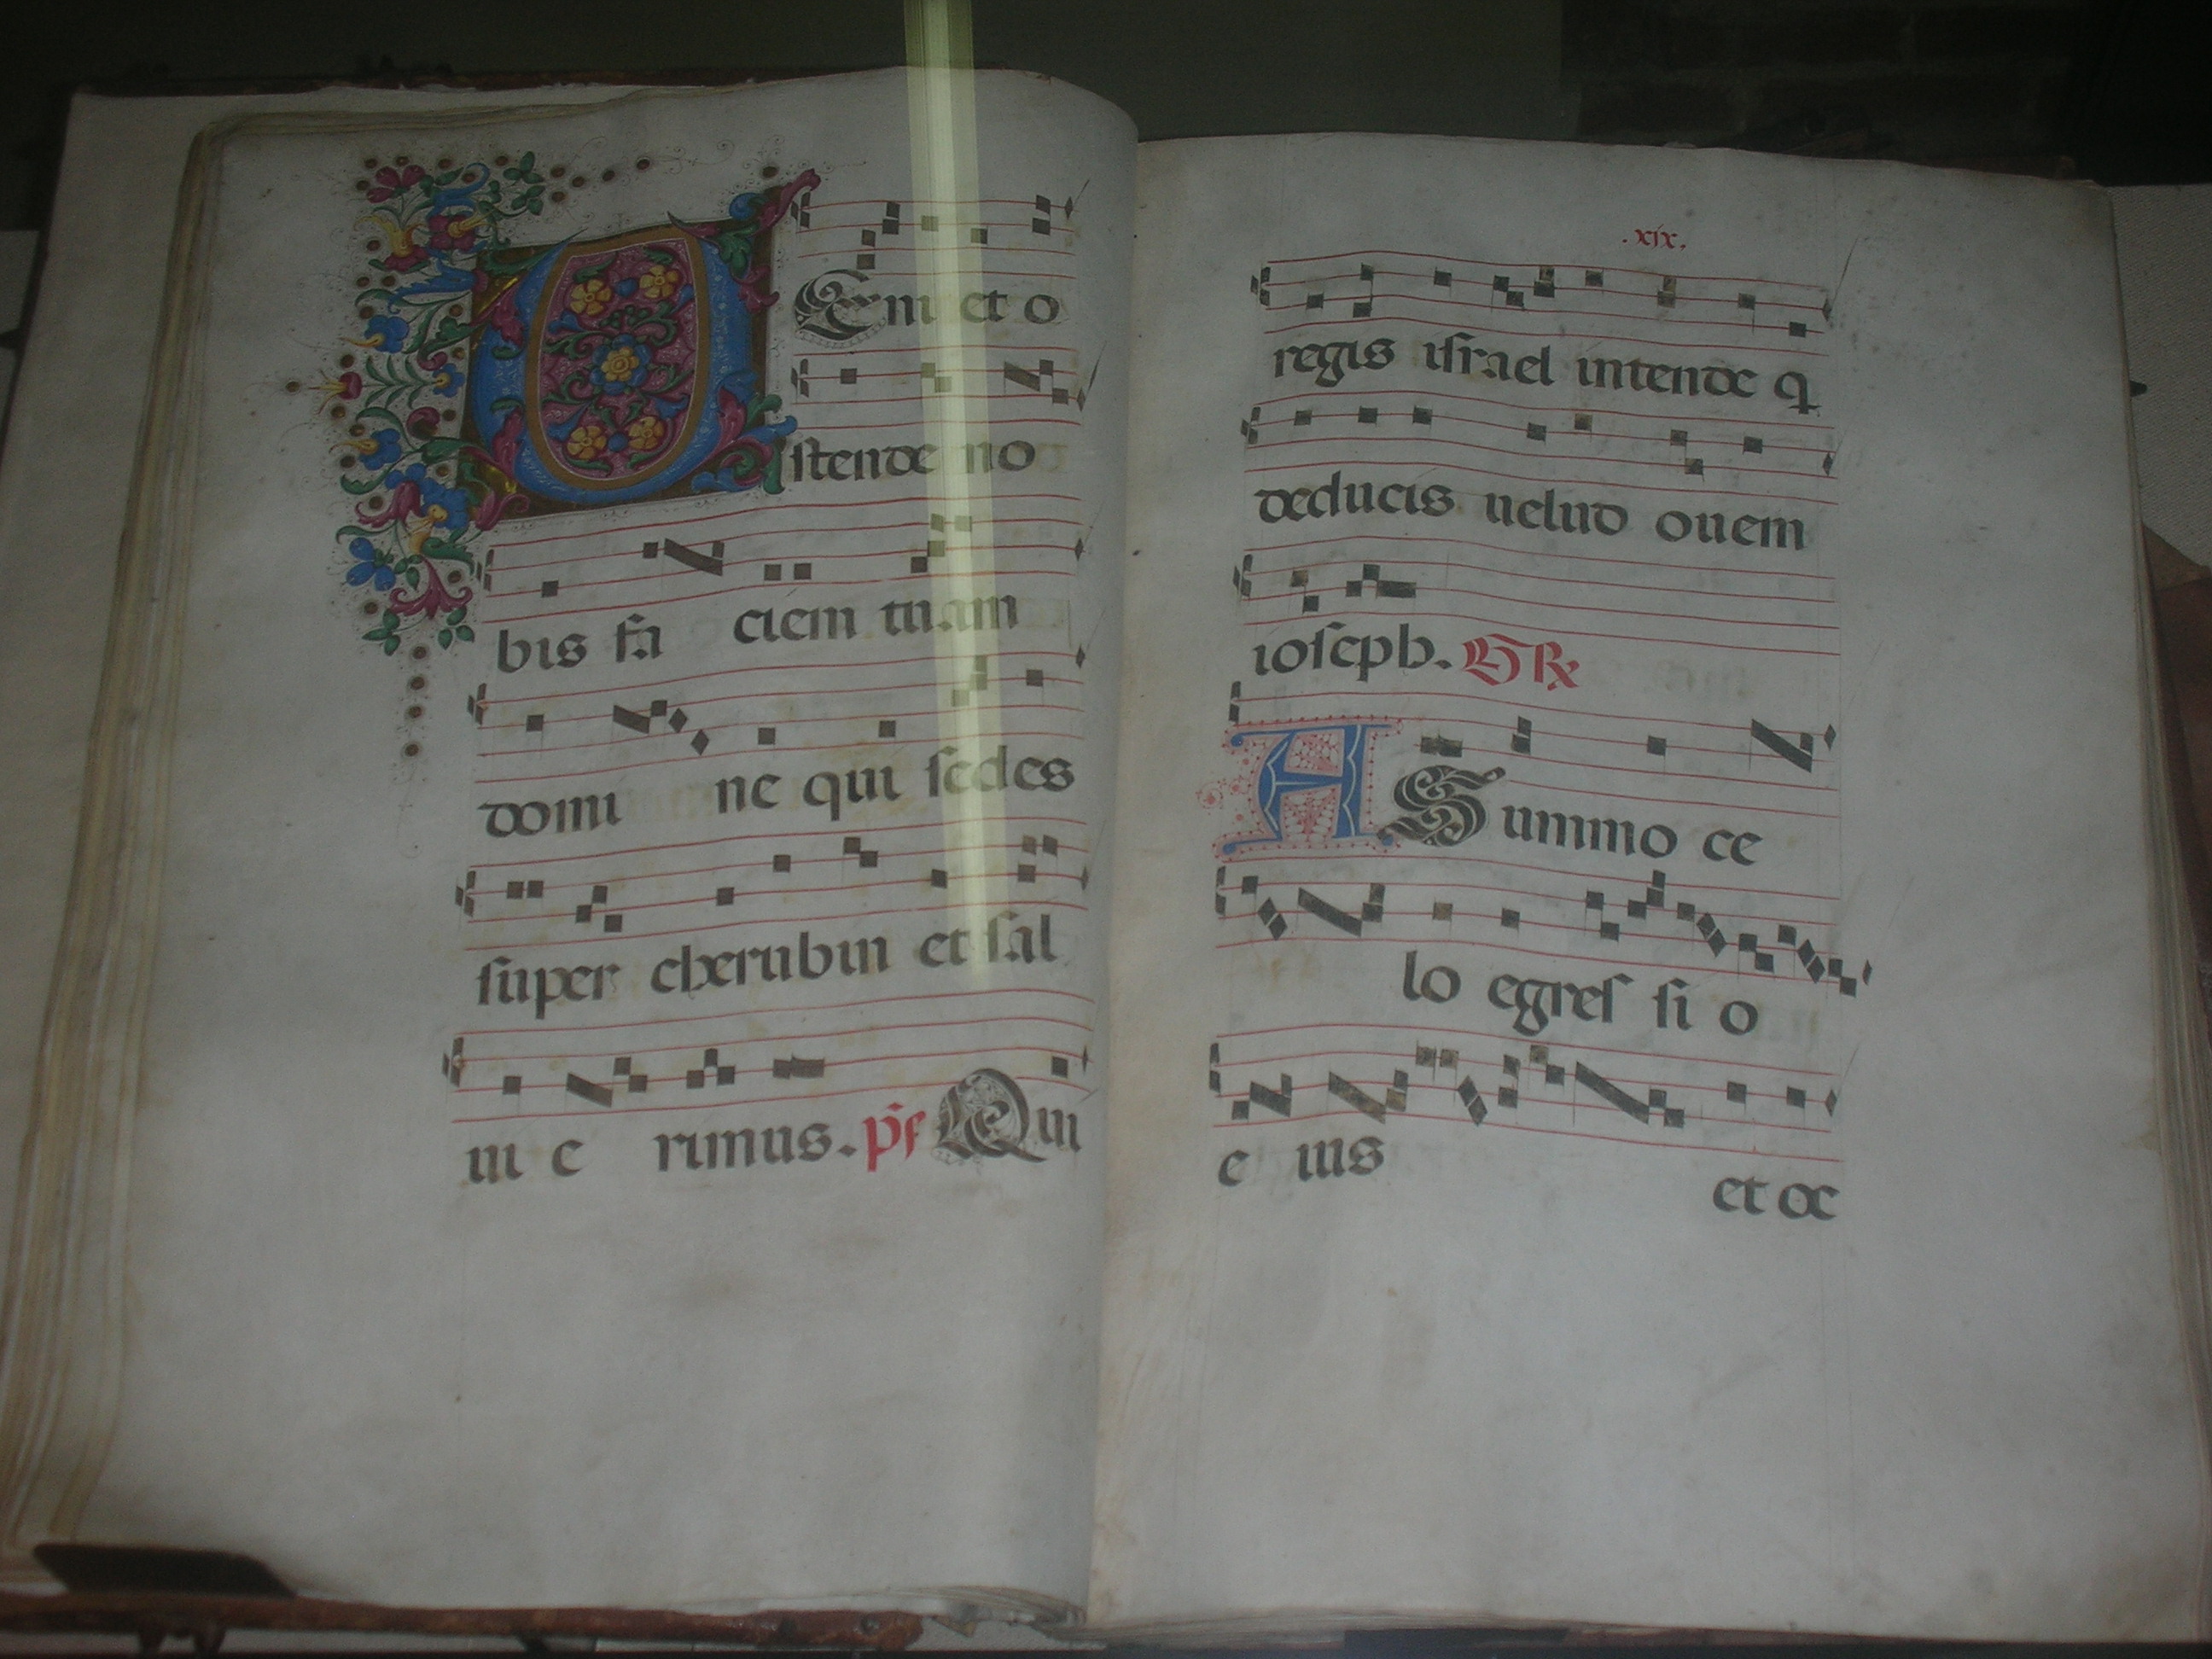 VEni et o
stende no
bis fa ciem tuam
domi ne qui sedes
super cherubin et sal
ui e rimus. ps Qui
.xix.
regis israel intende q
deducis uelud ouem
ioseph. 
ASummo ce
lo egres si o
e ius et oc